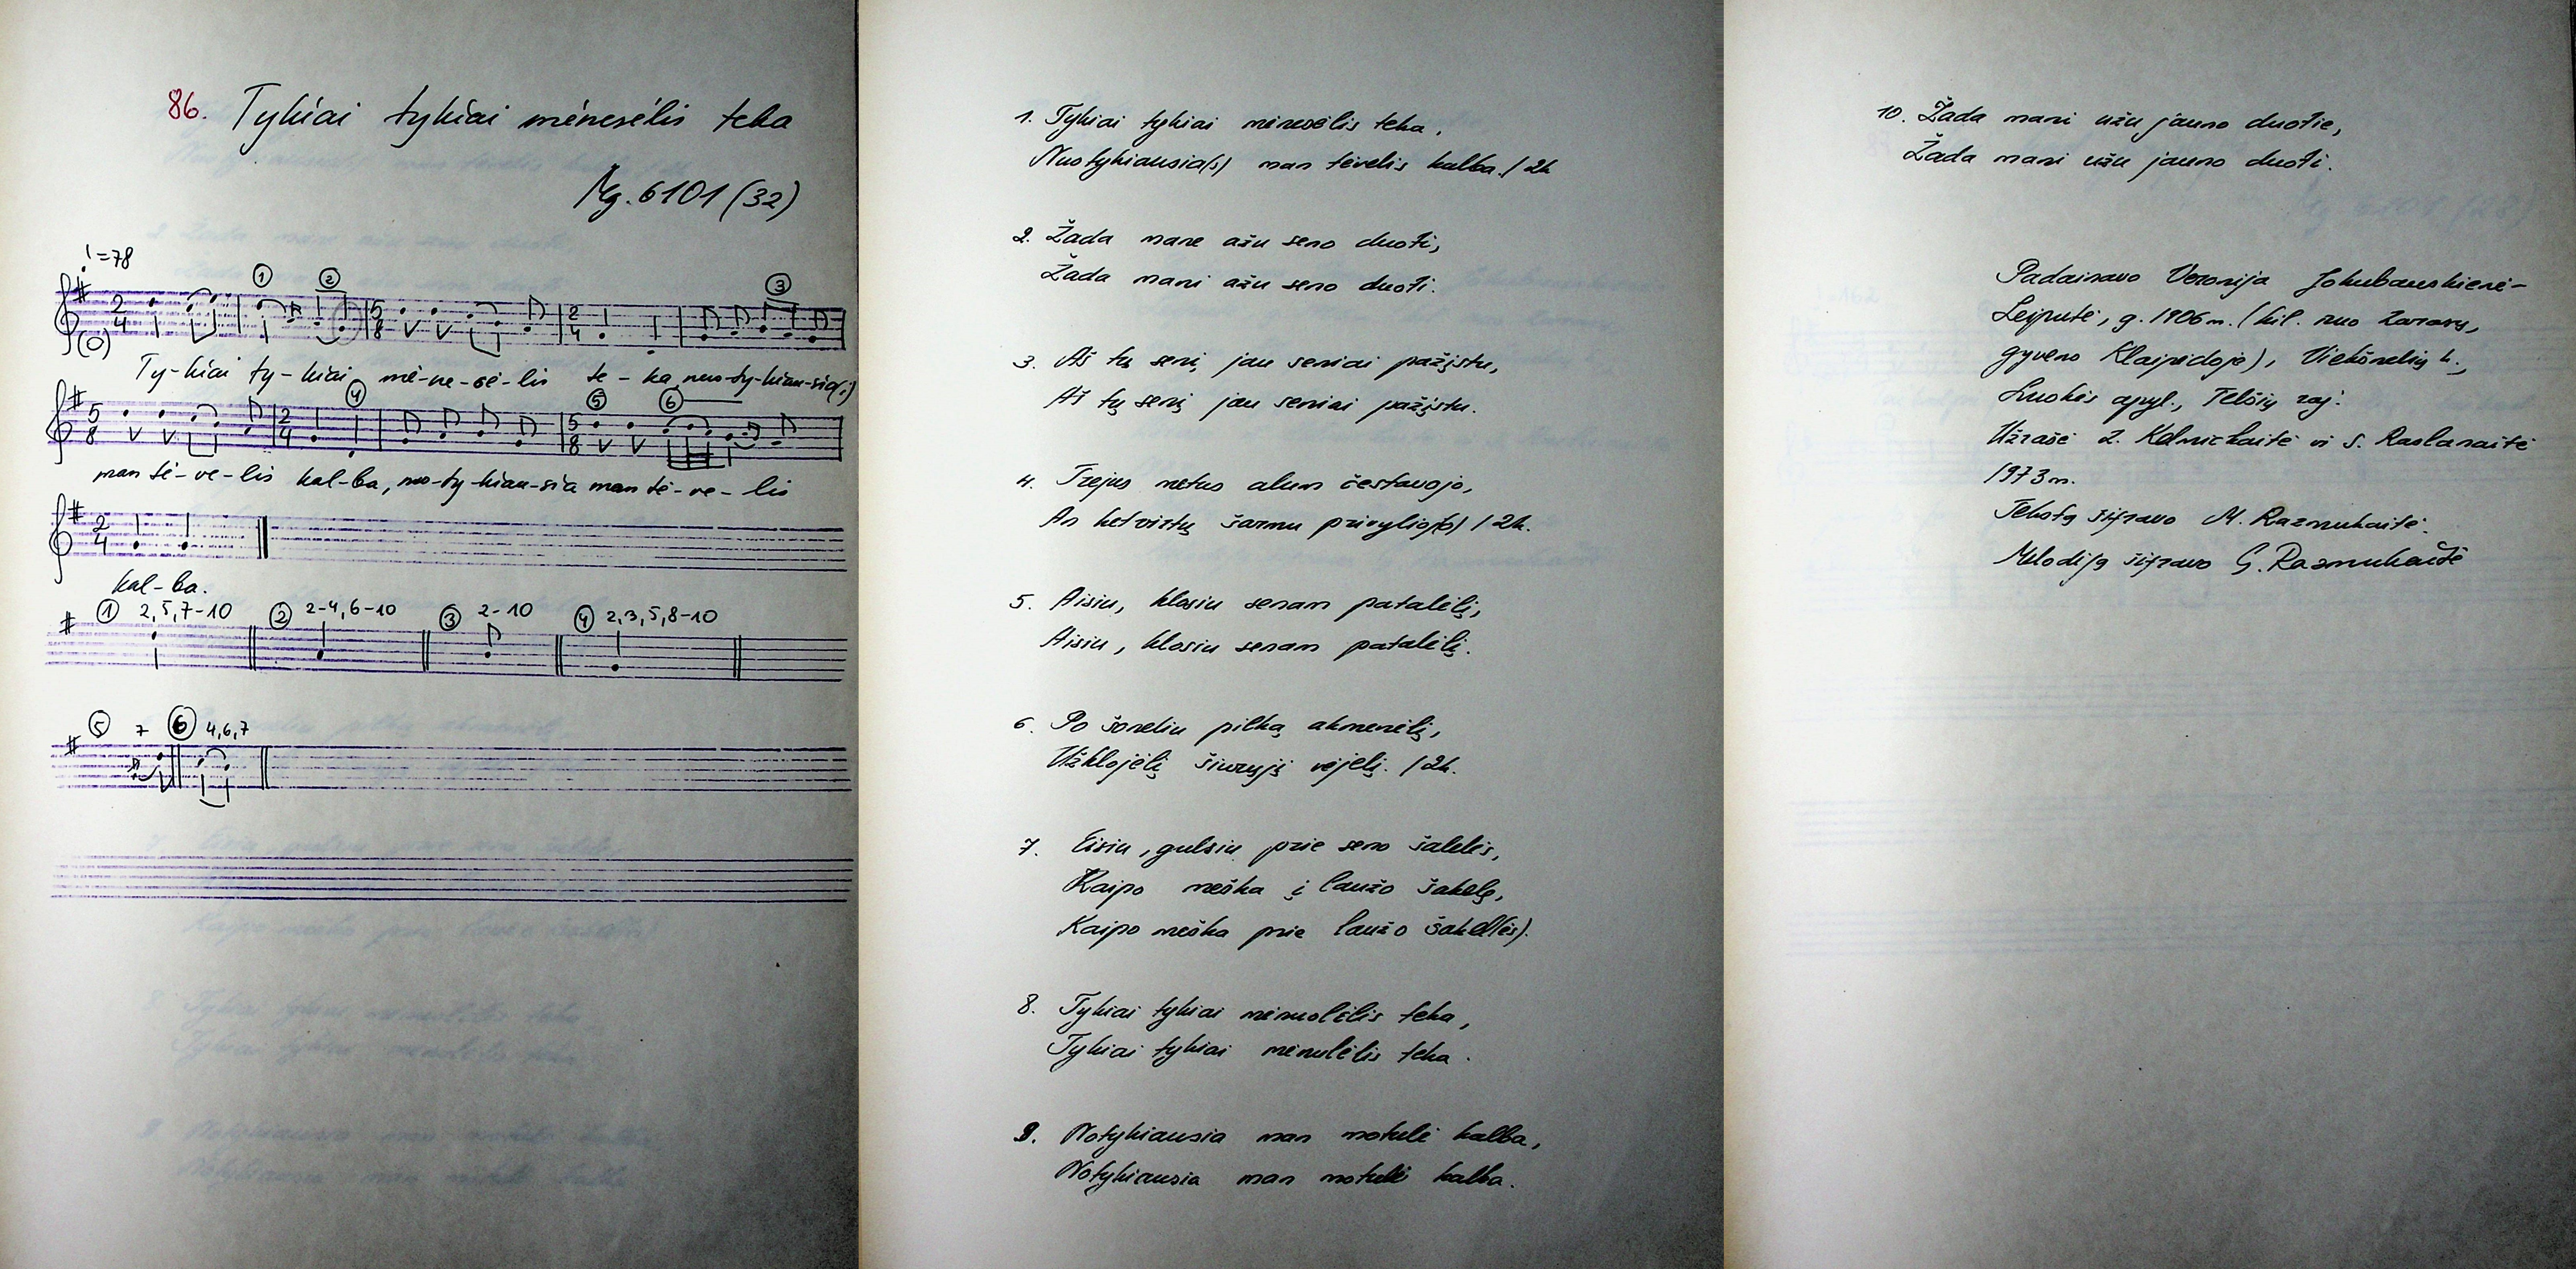 86. Tykiai tykiai mėnesėlis teka
Mg. 6101 (32)
♩=78
1 2 3
2/4 5/8 2/4
(O)
Ty-kiai ty-kiai mė-ne-sė-lis te-ka, nuo-ty-kiau-sia(s)
4 5 6
5/8 2/4 5/8
man tė-ve-lis kal-ba, nuo-ty-kiau-sia man tė-ve-lis
2/4
kal-ba.
1 2,5,7-10 2 2-4,6-10 3 2-10 4 2,3,5,8-10
5 7 6 4,6,7
1. Tykiai tykiai mėnesėlis teka,
Nuotykiausia(s) man tėvelis kalba. / 2k
2. Žada mane ažu seno duoti,
Žada mani ažu seno duoti.
3. Aš tų senį jau seniai pažįstu,
Aš tų senį jau seniai pažįstu.
4. Trejus metus alum čestavojo,
An ketvirtų šarmu privylioj(o) / 2k.
5. Aisiu, klosiu senam patalėlį,
Aisiu, klosiu senam patalėlį.
6. Po šoneliu pilką akmenėlį,
Užklojėlį šiaurųjį vėjelį. / 2k.
7. Eisiu, gulsiu prie seno šalelės,
Kaipo meška į laužo šakelę,
Kaipo meška prie laužo šakel(ės).
8. Tykiai tykiai mėnuolėlis teka,
Tykiai tykiai mėnulėlis teka.
9. Notykiausia man motulė kalba,
Notykiausia man motulė kalba.
10. Žada mani užu jauno duotie,
Žada mani užu jauno duoti.
Padainavo Veronija Jokubauskienė-
Leiputė, g. 1906 m. (kil. nuo Zarasų,
gyveno Klaipėdoje), Viekšnalių k.,
Luokės apyl., Telšių raj.
Užrašė Z. Kelmickaitė ir S. Raslanaitė
1973 m.
Tekstą šifravo M. Razmukaitė.
Melodiją šifravo G. Razmukaitė